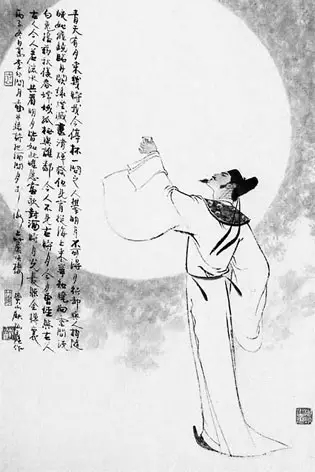 青天有月來幾時我今停杯一問之人攀明月不可得月行卻與人相隨
皎如飛鏡臨丹闕綠煙滅盡清輝發但見宵從海上來寧知曉向雲間沒
白兔搗藥秋復春嫦娥孤棲與誰鄰今人不見古時月今月曾經照古人
古人今人若流水共看明月皆如此唯願當歌對酒時月光長照金樽裏